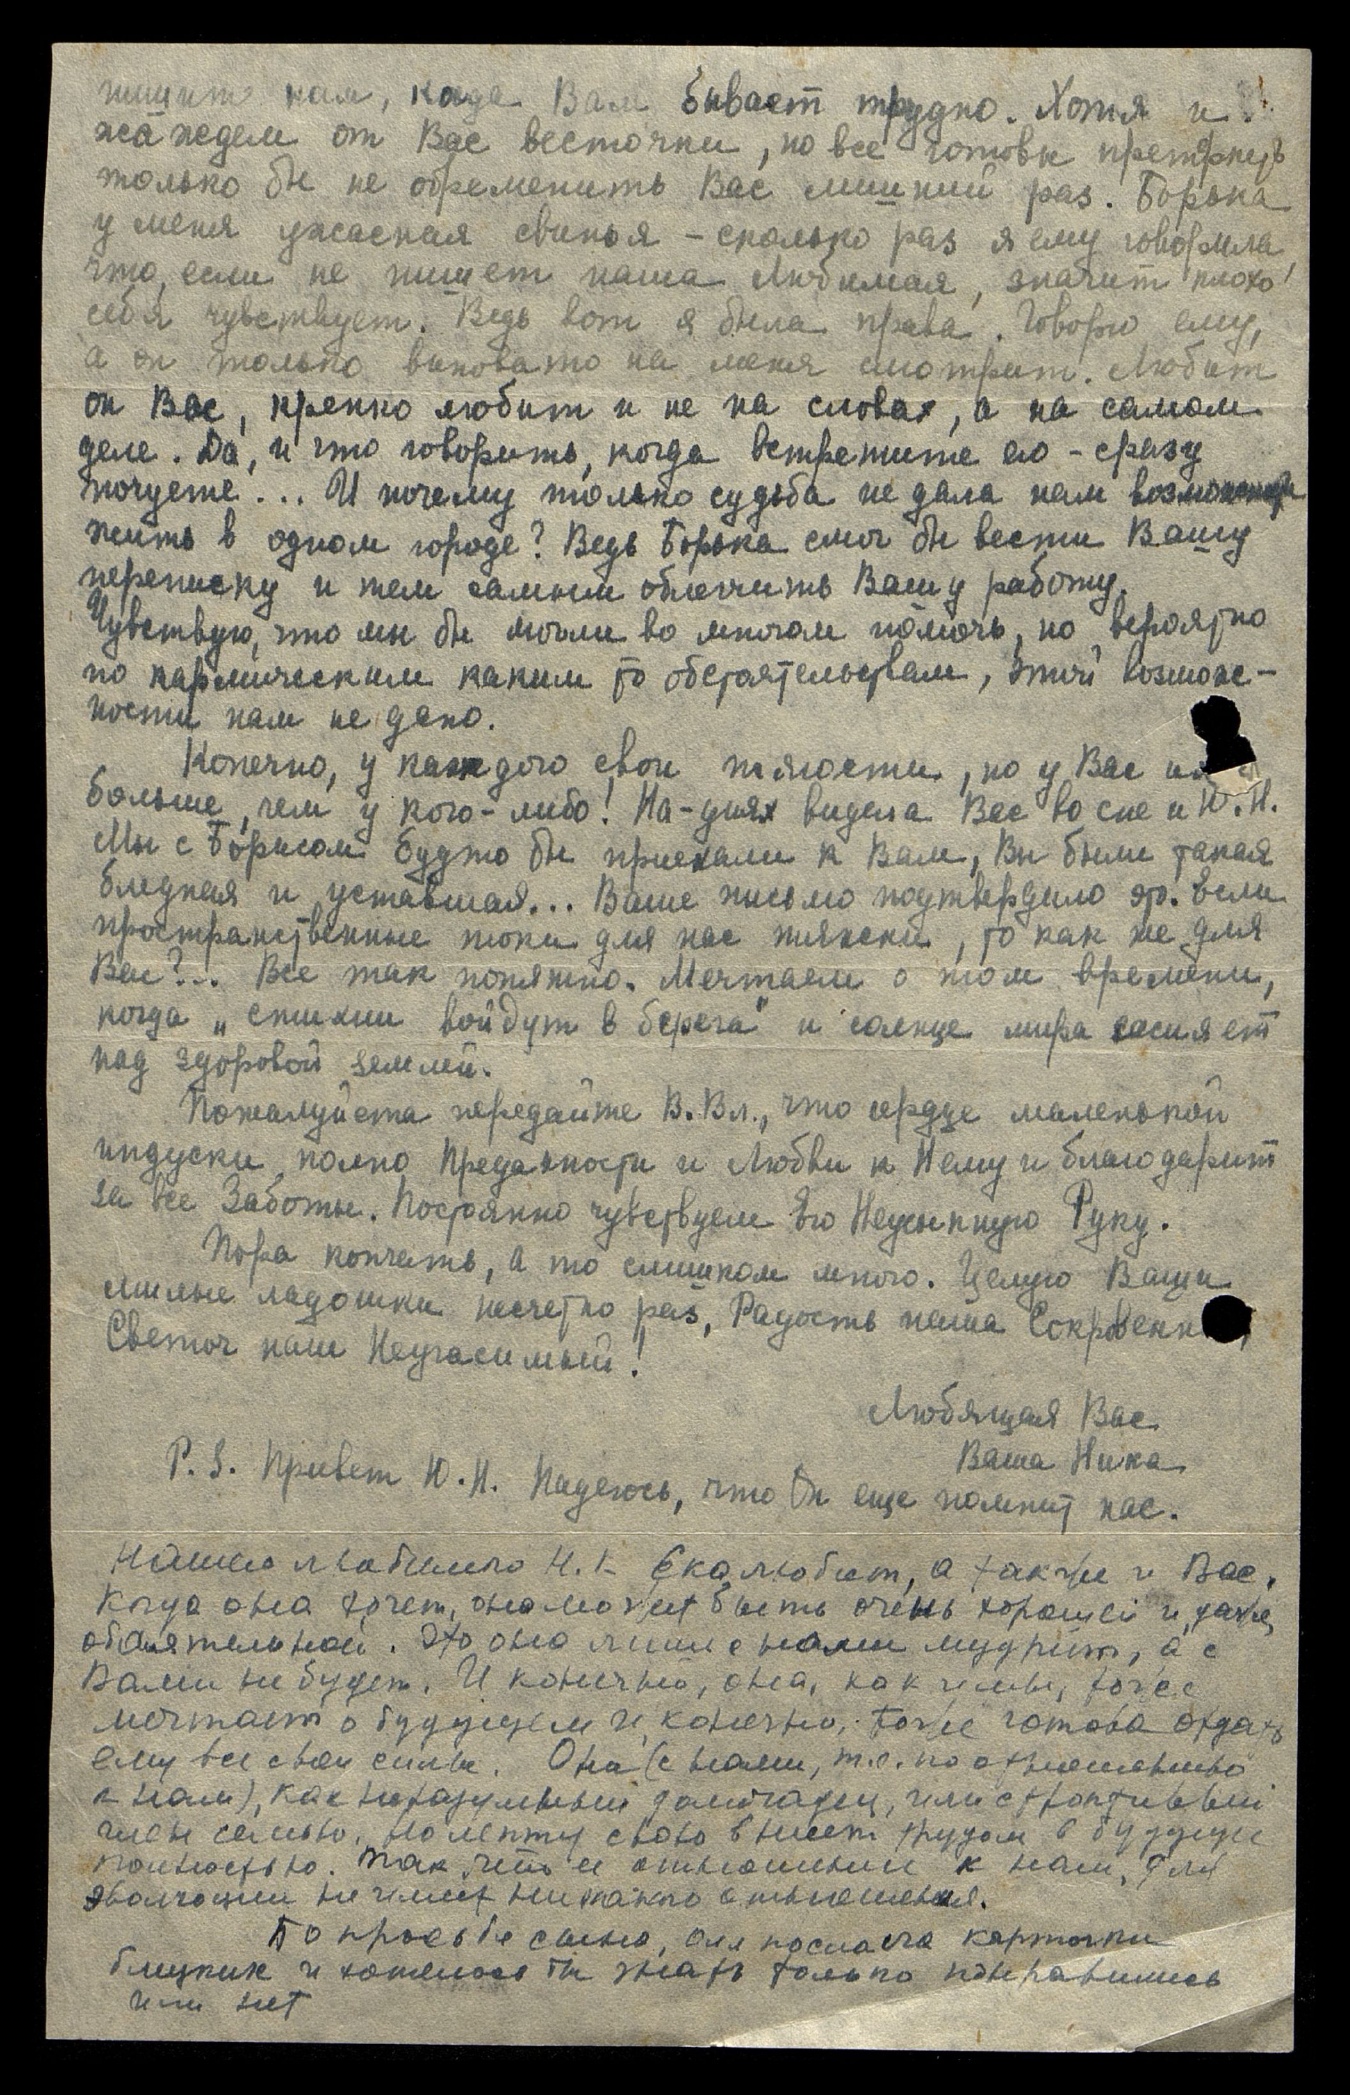 пишите нам, когда Вам бывает трудно. Хотя и
жаждем от Вас весточки, но все готовы претерпеть
только бы не обременить Вас лишний раз. Борька
у меня ужасная свинья – сколько раз я ему говорила,
что, если не пишет наша Любимая, значит плохо
себя чувствует. Ведь вот я была права. Говорю ему,
а он только виновато на меня смотрит. Любит
он Вас, крепко любит и не на словах, а на самом
деле. Да, и что говорить, когда встретите его – сразу
почуете... И почему только судьба не дала нам возможности
жить в одном городе? Ведь Борька смог бы вести Вашу
переписку и тем самым облегчить Вашу работу.
Чувствую, что мы бы могли во многом помочь, но вероятно
по кармическим каким то обстоятельствам, этой возмож-
ности нам не дано.
Конечно, у каждого свои тягости, но у Вас их
больше, чем у кого-либо! На-днях видела Вас во сне и Ю.Н.
Мы с Борисом будто бы приехали к Вам, Вы были такая
бледная и уставшая... Ваше письмо подтвердило это. Если
пространственные токи для нас тяжски, то как же для
Вас?... Все так понятно. Мечтаем о том времени,
когда „стихии войдут в берега" и солнце мира засияет
над здоровой землей.
Пожалуйста передайте В.Вл., что сердце маленькой
индуски полно Преданности и Любви к Нему и благодарит
за все Заботы. Постоянно чувствуем Его Неусыпную Руку.
Пора кончать, а то слишком много. Целую Ваши
милые ладошки несчетно раз, Радость наша
Светоч наш Неугасимый!
Любящая Вас
Ваша Ника
P.S. Привет Ю.Н. Надеюсь, что Он еще помнит нас.
Нашего любимого Н.К. Ека любит, а также и Вас.
Когда она хочет, она может быть очень хорошей и, даже,
обаятельной. Это она лишь с нами мудрит, а с
Вами не будет. И конечно, она, как и мы, тоже
мечтает о будущем и, конечно, тоже готова отдать
ему все свои силы. Она (с нами, т.е. по отношению
к нам), как неразумный домочадец, или строптивый
член семьи, но лепту свою внесет трудом в будущее
полностью. Так что ее отношение к нам, для
эволюции не имеет никакого отношения.
По просьбе сына, Вам послала карточки
близких и хотелось бы знать только понравились
или нет